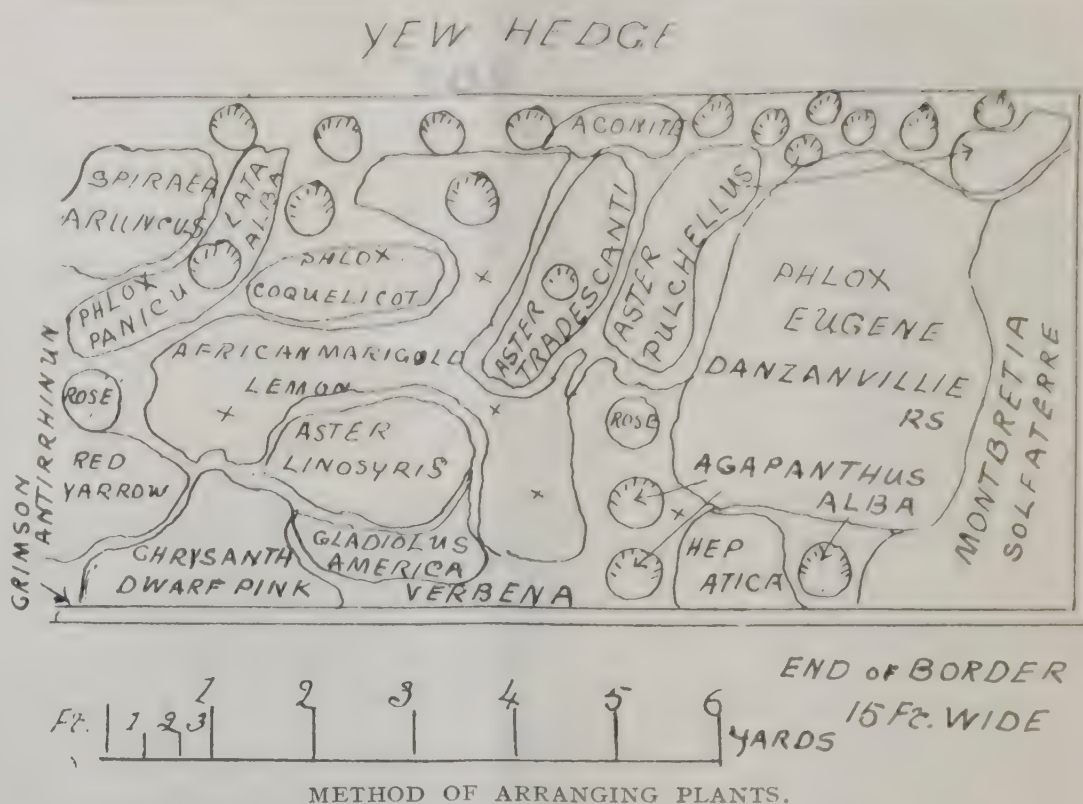 YEW HEDGE
ACONITE
SPIRAEA
ARUNCUS
LATA
ALBA
PHLOX
PANICU
PHLOX
COQUELICOT
ASTER
TRADESCANTI
ASTER
PULCHELLUS
PHLOX
EUGENE
DANZANVILLIE
RS
AFRICAN MARIGOLD
LEMON
ROSE
ROSE
ASTER
LINOSYRIS
RED
YARROW
AGAPANTHUS
ALBA
MONTBRETIA
SOLFATERRE
GRIMSON
ANTIRRHINUN
CHRYSANTH
DWARF PINK
GLADIOLUS
AMERICA
VERBENA
HEP
ATICA
END OF BORDER
15 FT. WIDE
Ft. 1 2 3 1 2 3 4 5 6
YARDS
METHOD OF ARRANGING PLANTS.